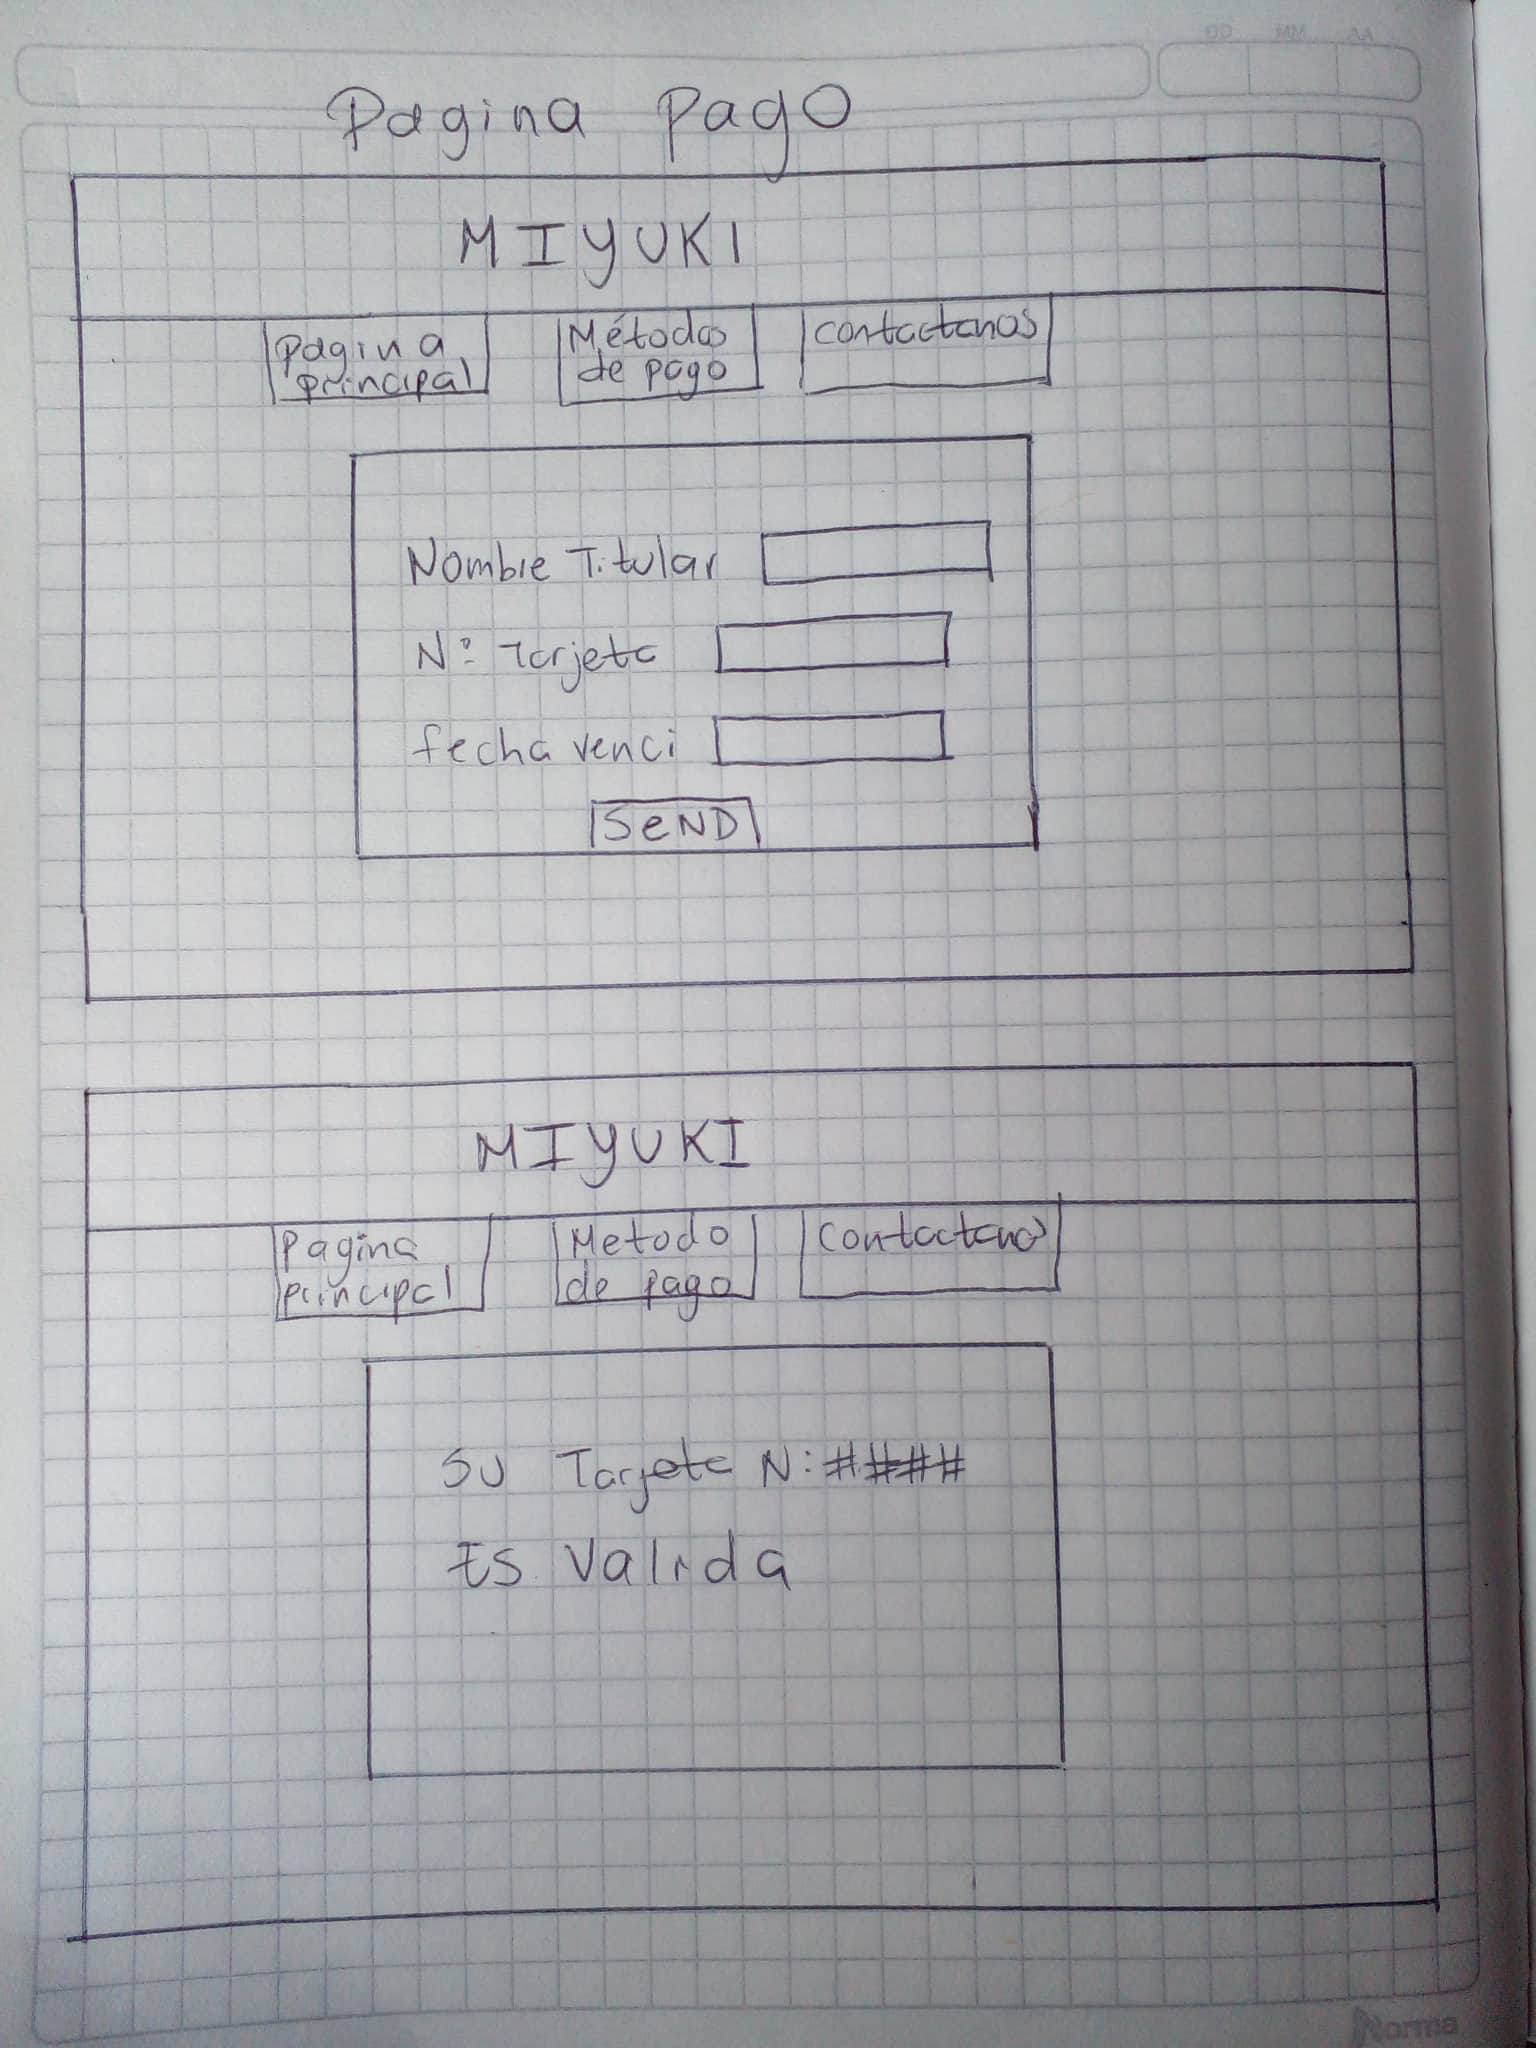 DD MM AA
Pagina Pago
MIYUKI
Pagina
principal
Métodos
de pago
contactanos
Nombre Titular
Nº Tarjeta
fecha venci
SeND
MIYUKI
Pagina
principal
Metodo
de pago
contactano
SU Tarjeta N: ####
ES Valida
Norma